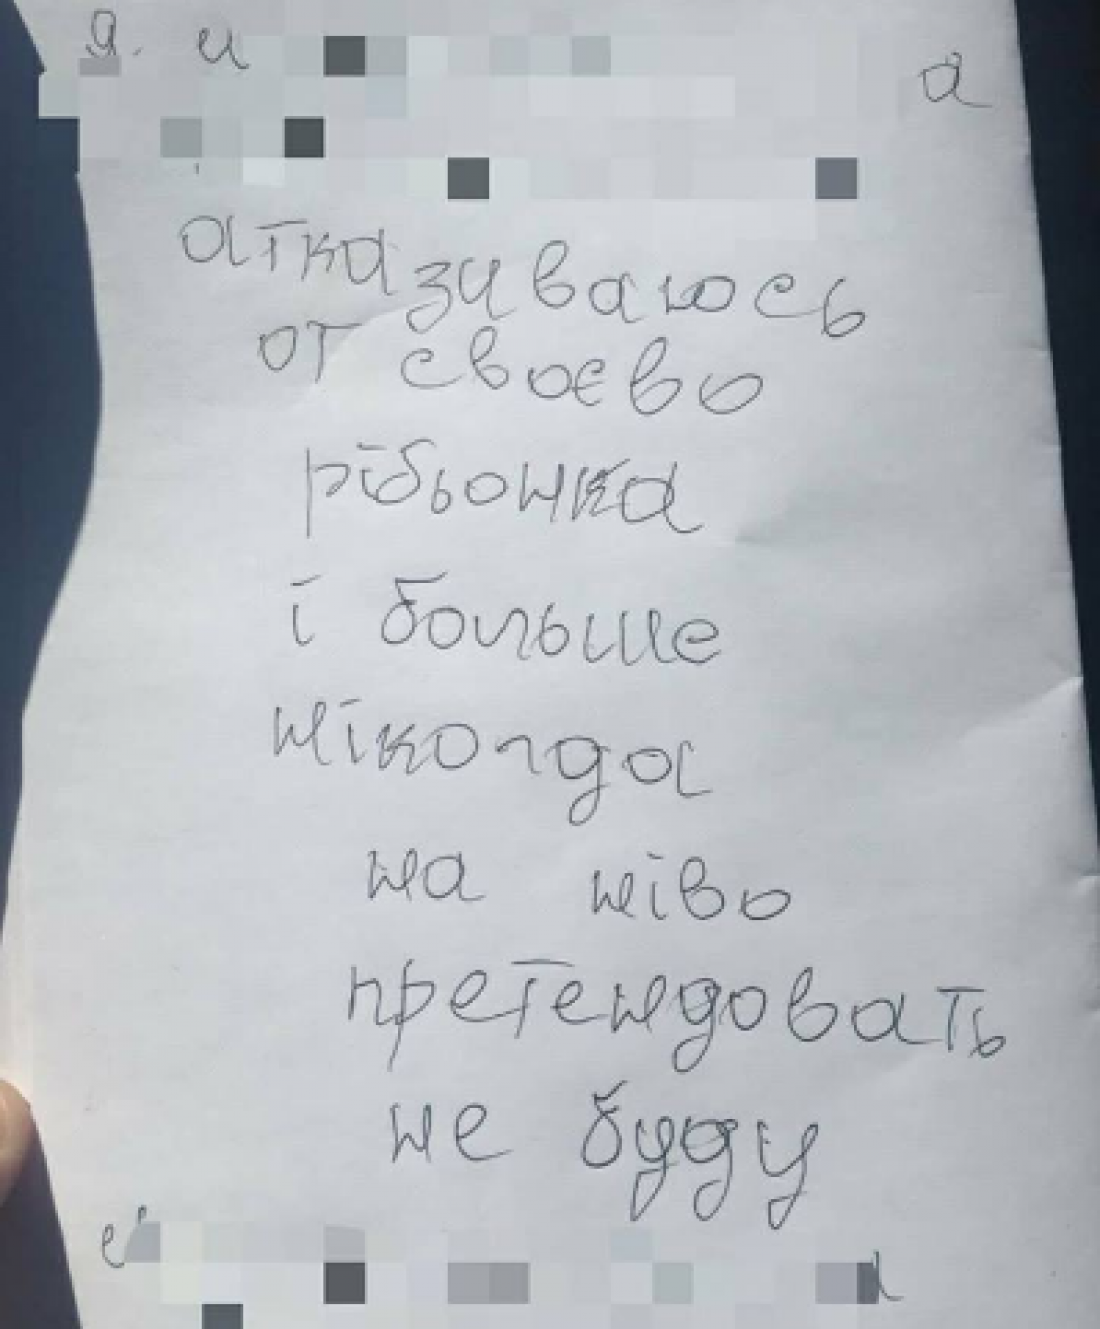 я. и а
атказиваюсь
от своєво
рібьонка
і больше
ніколда
на ніво
претендовать
не буду